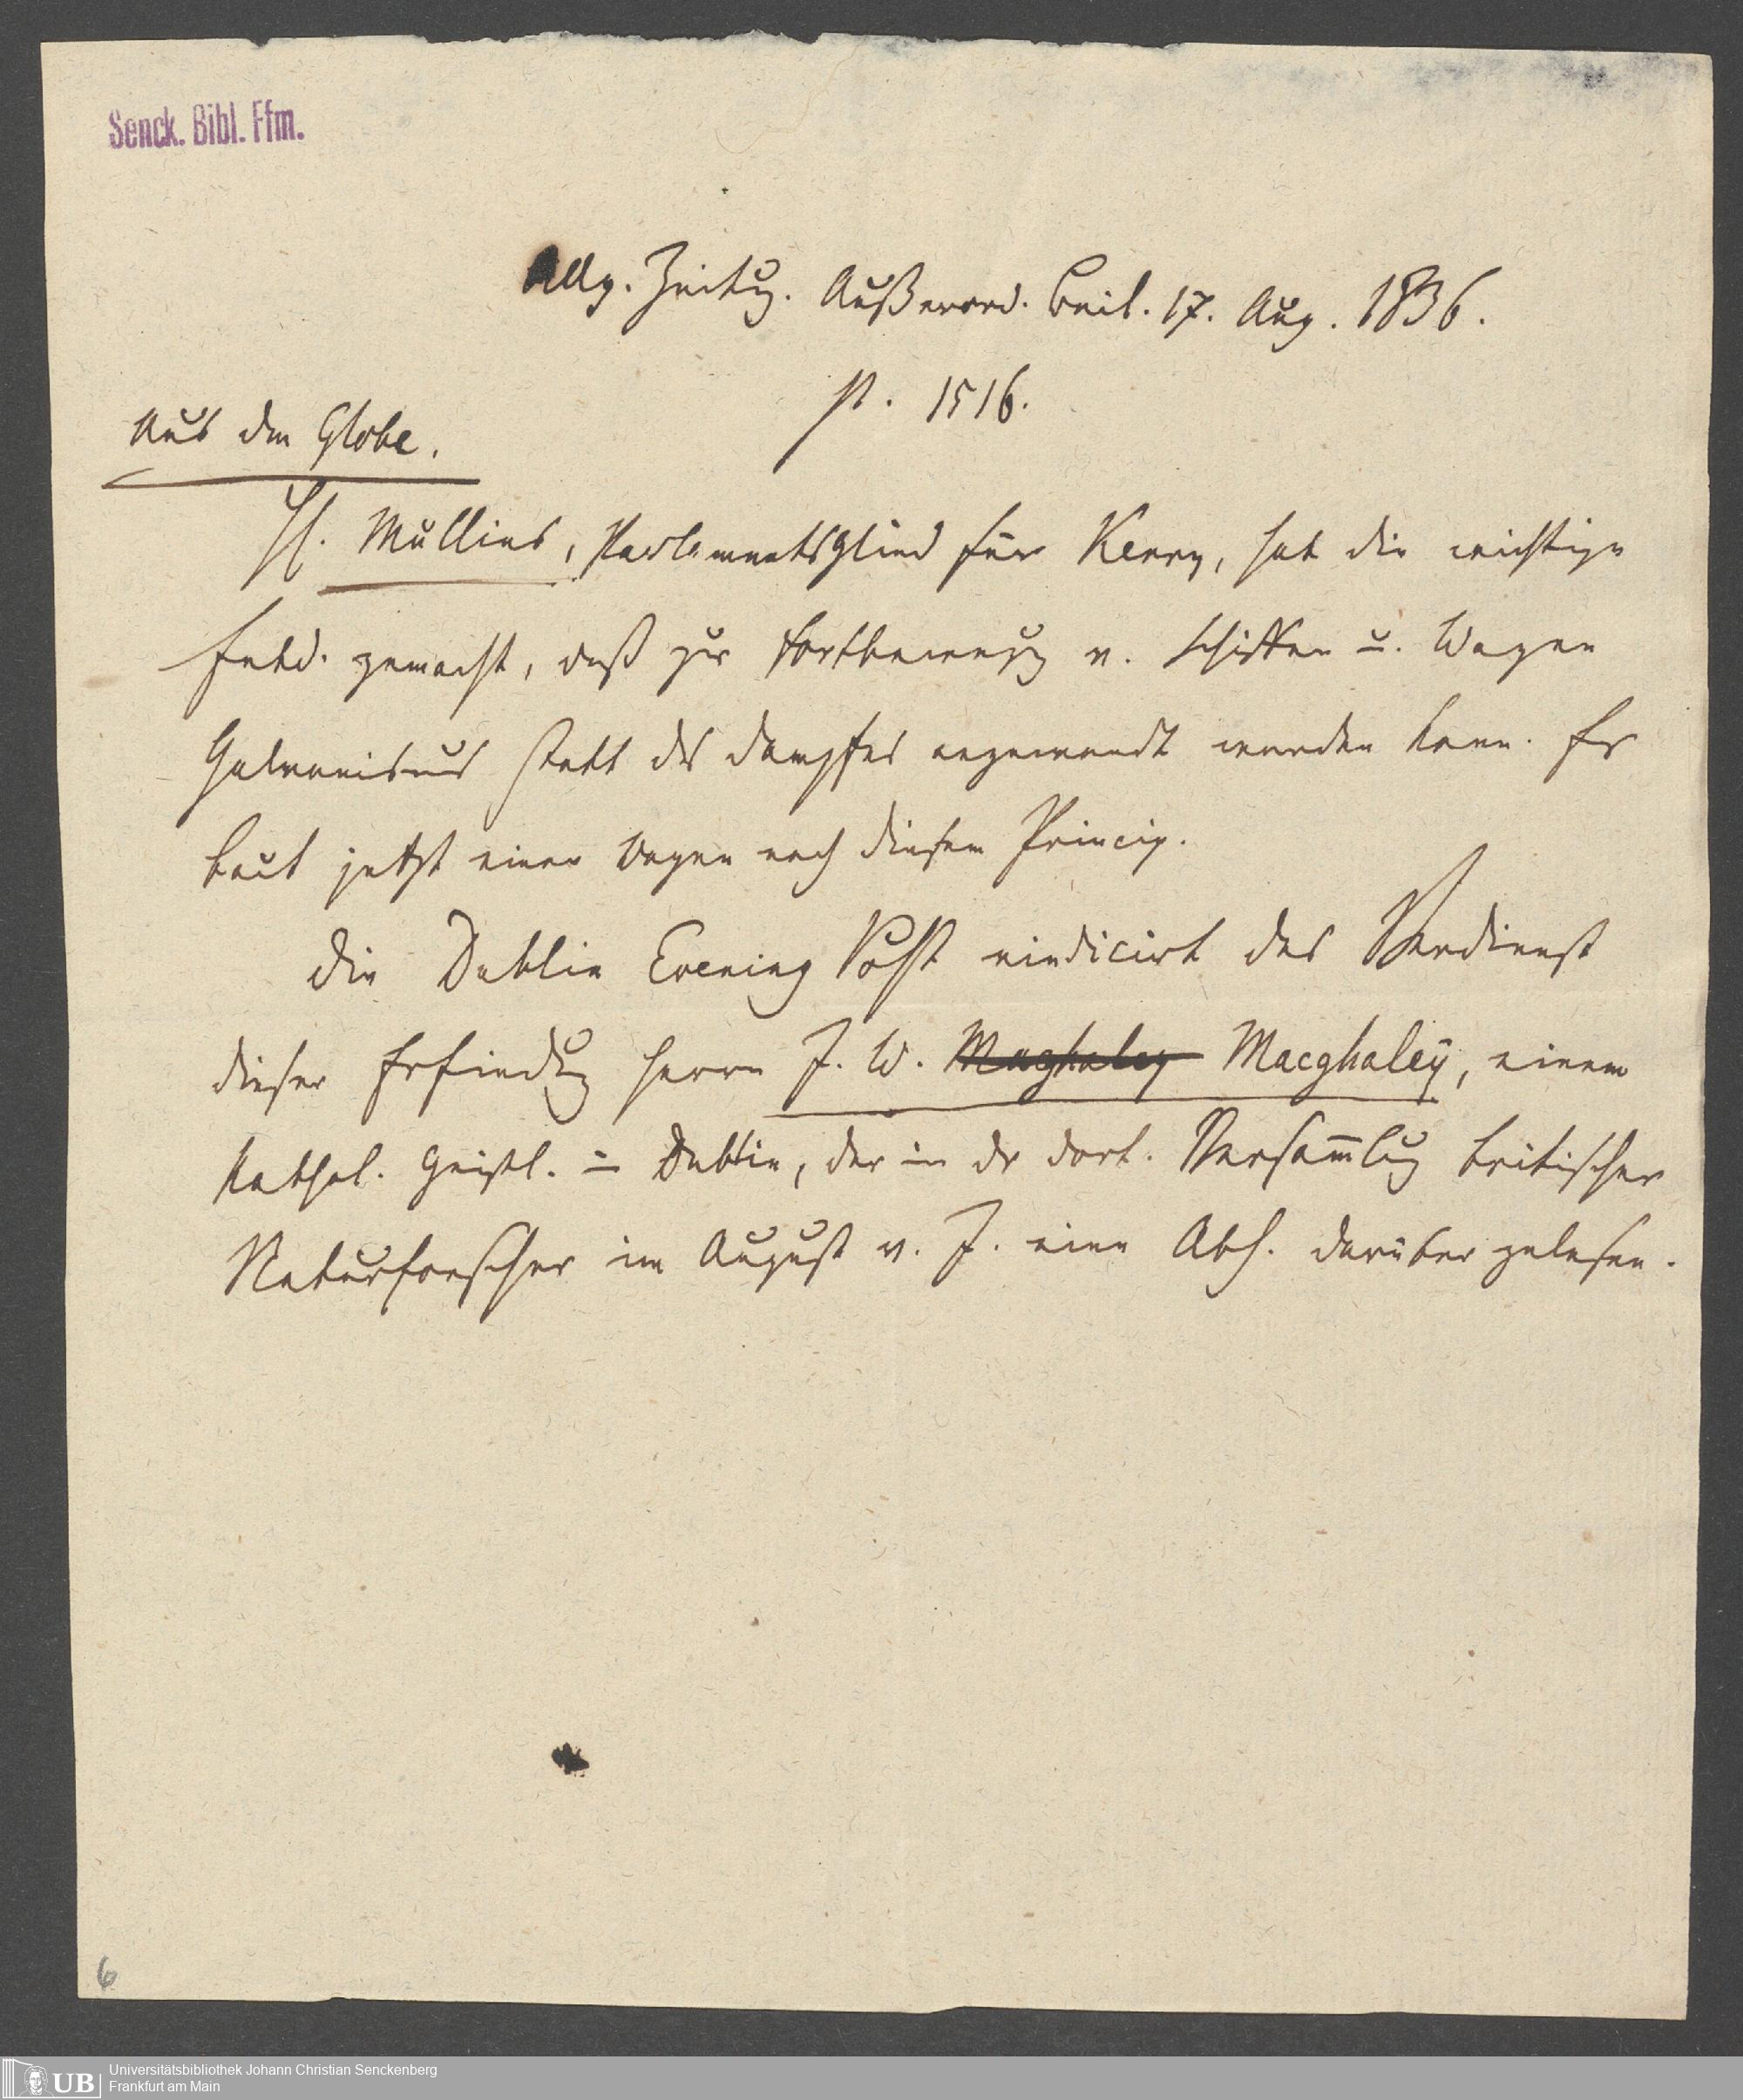 Senck. Bibl. Ffm.
Allg. Zeitug. Außerord. Beil. 17. Aug. 1836.
p. 1516.
Aus dem Globe.
H. Mullins, Parlamentsglied für Kerry, hat die wichtige
Entd. gemacht, daß zur Fortbewegug v. Schiffen u. Wagen
Galvanismus statt des Dampfes angewandt werden kann. Er
baut jetzt einen Wagen nach diesem Princip.
Die Dublin Evening Post vindicirt das Verdienst
dieser Erfindug Herrn J. W. Maghaley Macghaley, einem
kathol. Geistl. in Dublin, der in der dort. Versam̅lug britischer
Naturforscher im August v. J. eine Abh. darüber gelesen.
6
UB Universitätsbibliothek Johann Christian Senckenberg
Frankfurt am Main